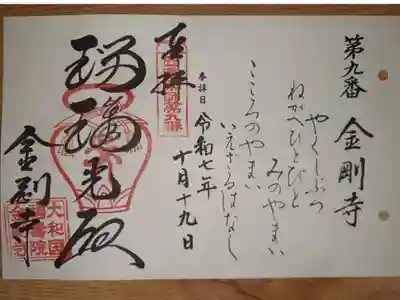 第九番　金剛寺
やくしぶつ
ねがへひとびと
みのやまい
こころのやまい
いえざるはなし
参拝日　令和七年
十月十九日
奉拝
瑠璃光殿
金剛寺